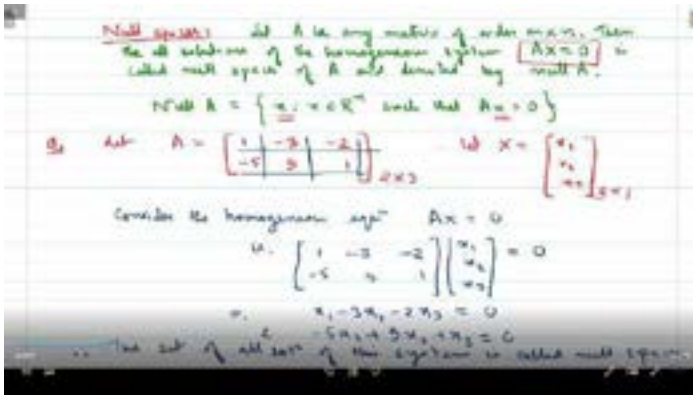 Null space: Let A be any matrix of order m x n. Then
the all solutions of the homogeneous system Ax = 0 is
called null space of A and denoted by null A.
Null A = { x : x ∈ Rⁿ such that Ax = 0 }
Let A = [ 1 -3 -2 Let x = [ x₁
-5 9 1 ] 2x3 x₂
x₃ ] 3x1
Consider the homogeneous eqⁿ Ax = 0
[ 1 -3 -2 [ x₁ = 0
-5 9 1 ] x₂
x₃ ]
x₁ - 3x₂ - 2x₃ = 0
-5x₁ + 9x₂ + x₃ = 0
∴ The set of all of this system is called null space